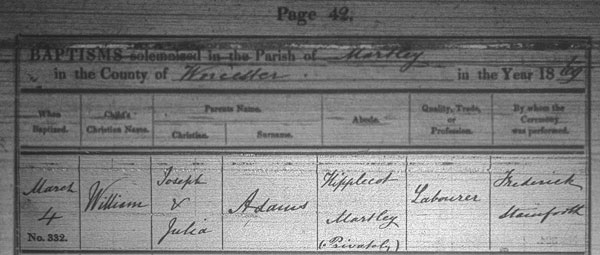 Page 42.
BAPTISMS solemnised in the Parish of Martley
in the County of Worcester. in the Year 1869
When Baptized.
Child's Christian Name.
Parents Name.
Christian.
Surname.
Abode.
Quality, Trade, or Profession.
By whom the Ceremony was performed.
March
4
No. 332.
William
Joseph
&
Julia
Adams
Hipplecot
Martley
(Privately)
Labourer
Frederick
Stainforth